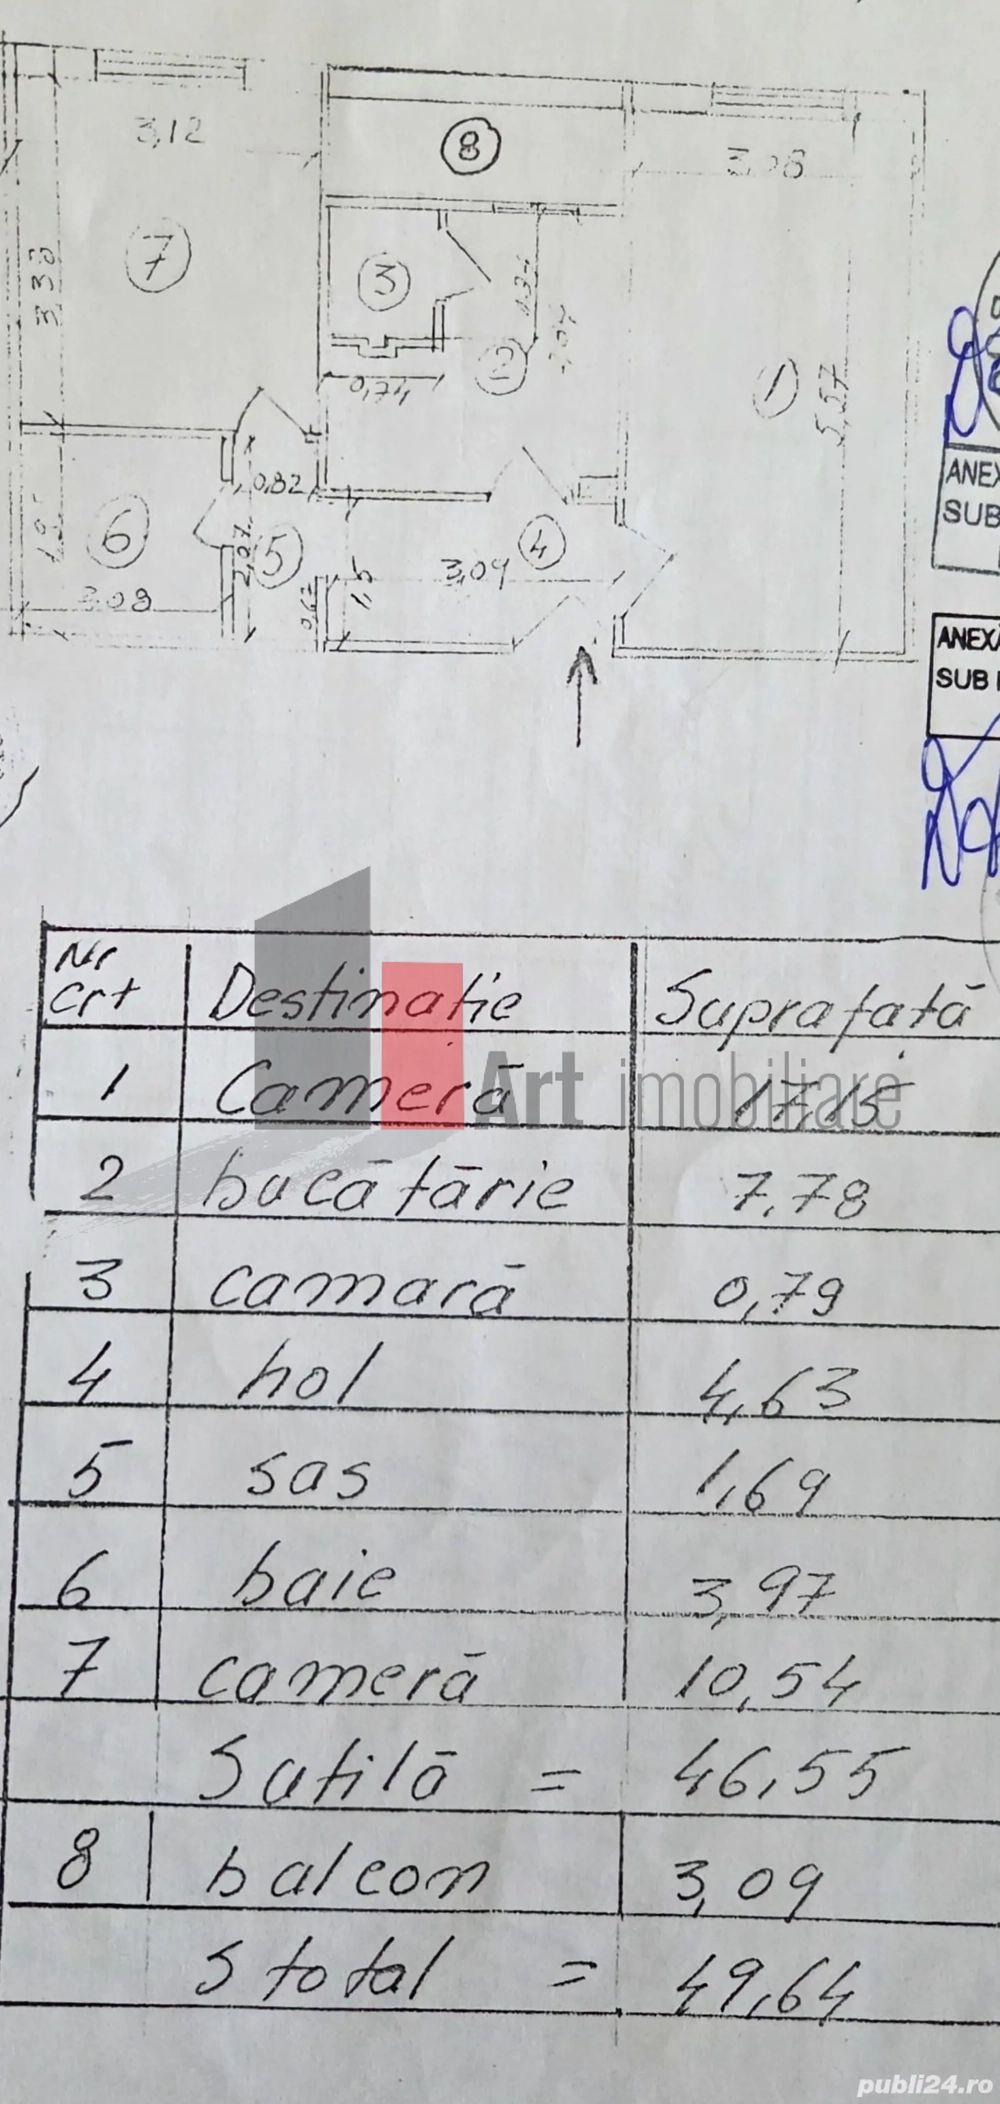 3,12
8
3,08
7
3,38
3
1,34
2,07
0,74
2
1
5,57
0,82
6
5
2,07
4
3,09
3,08
0,67
1,5
ANEX
SUB
ANEXĂ
SUB
Nr
crt
Destinatie
Suprafată
1 Cameră 17,15
Art imobiliare
2 bucătărie 7,78
3 camară 0,79
4 hol 4,63
5 sas 1,69
6 baie 3,97
7 cameră 10,54
Sutilă = 46,55
8 balcon 3,09
S total = 49,64
publi24.ro